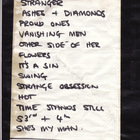 STRANGER
ASHES + DIAMONDS
PROUD ONES
VANISHING MEN
OTHER SIDE OF HER
FLOWERS
IT'S A SIN
SWING
STRANGE OBSESSION
HOT
TIME STANDS STILL
53RD + 4TH
SHE'S MY MAN